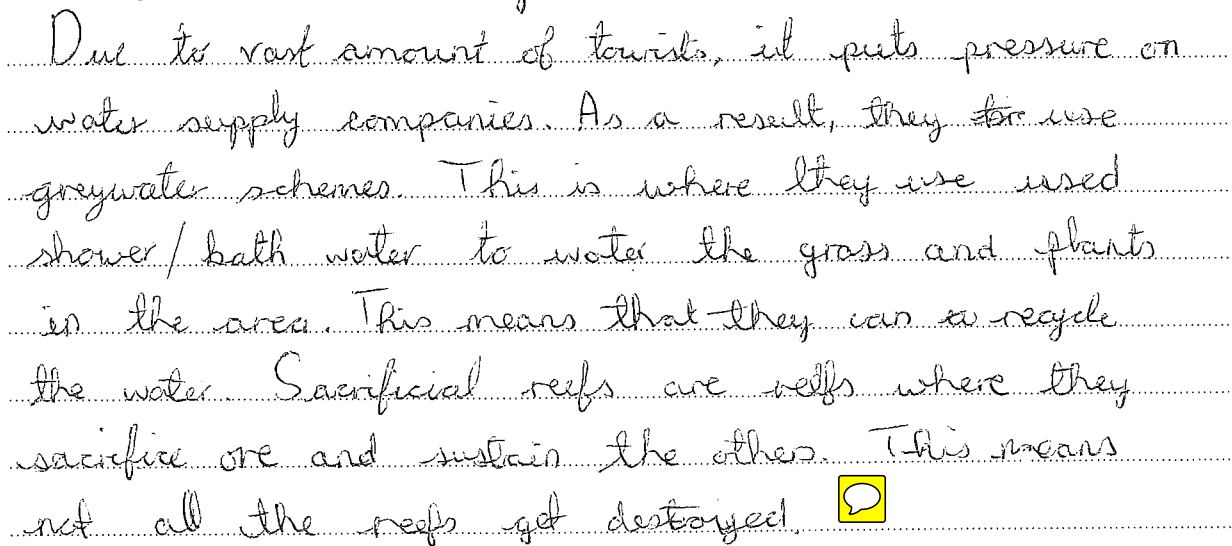 Due to vast amount of tourists, it puts pressure on
water supply companies. As a result, they use
greywater schemes. This is where they use used
shower/bath water to water the grass and plants
in the area. This means that they can recycle
the water. Sacrificial reefs are reefs where they
sacrifice one and sustain the others. This means
not all the reefs get destroyed.